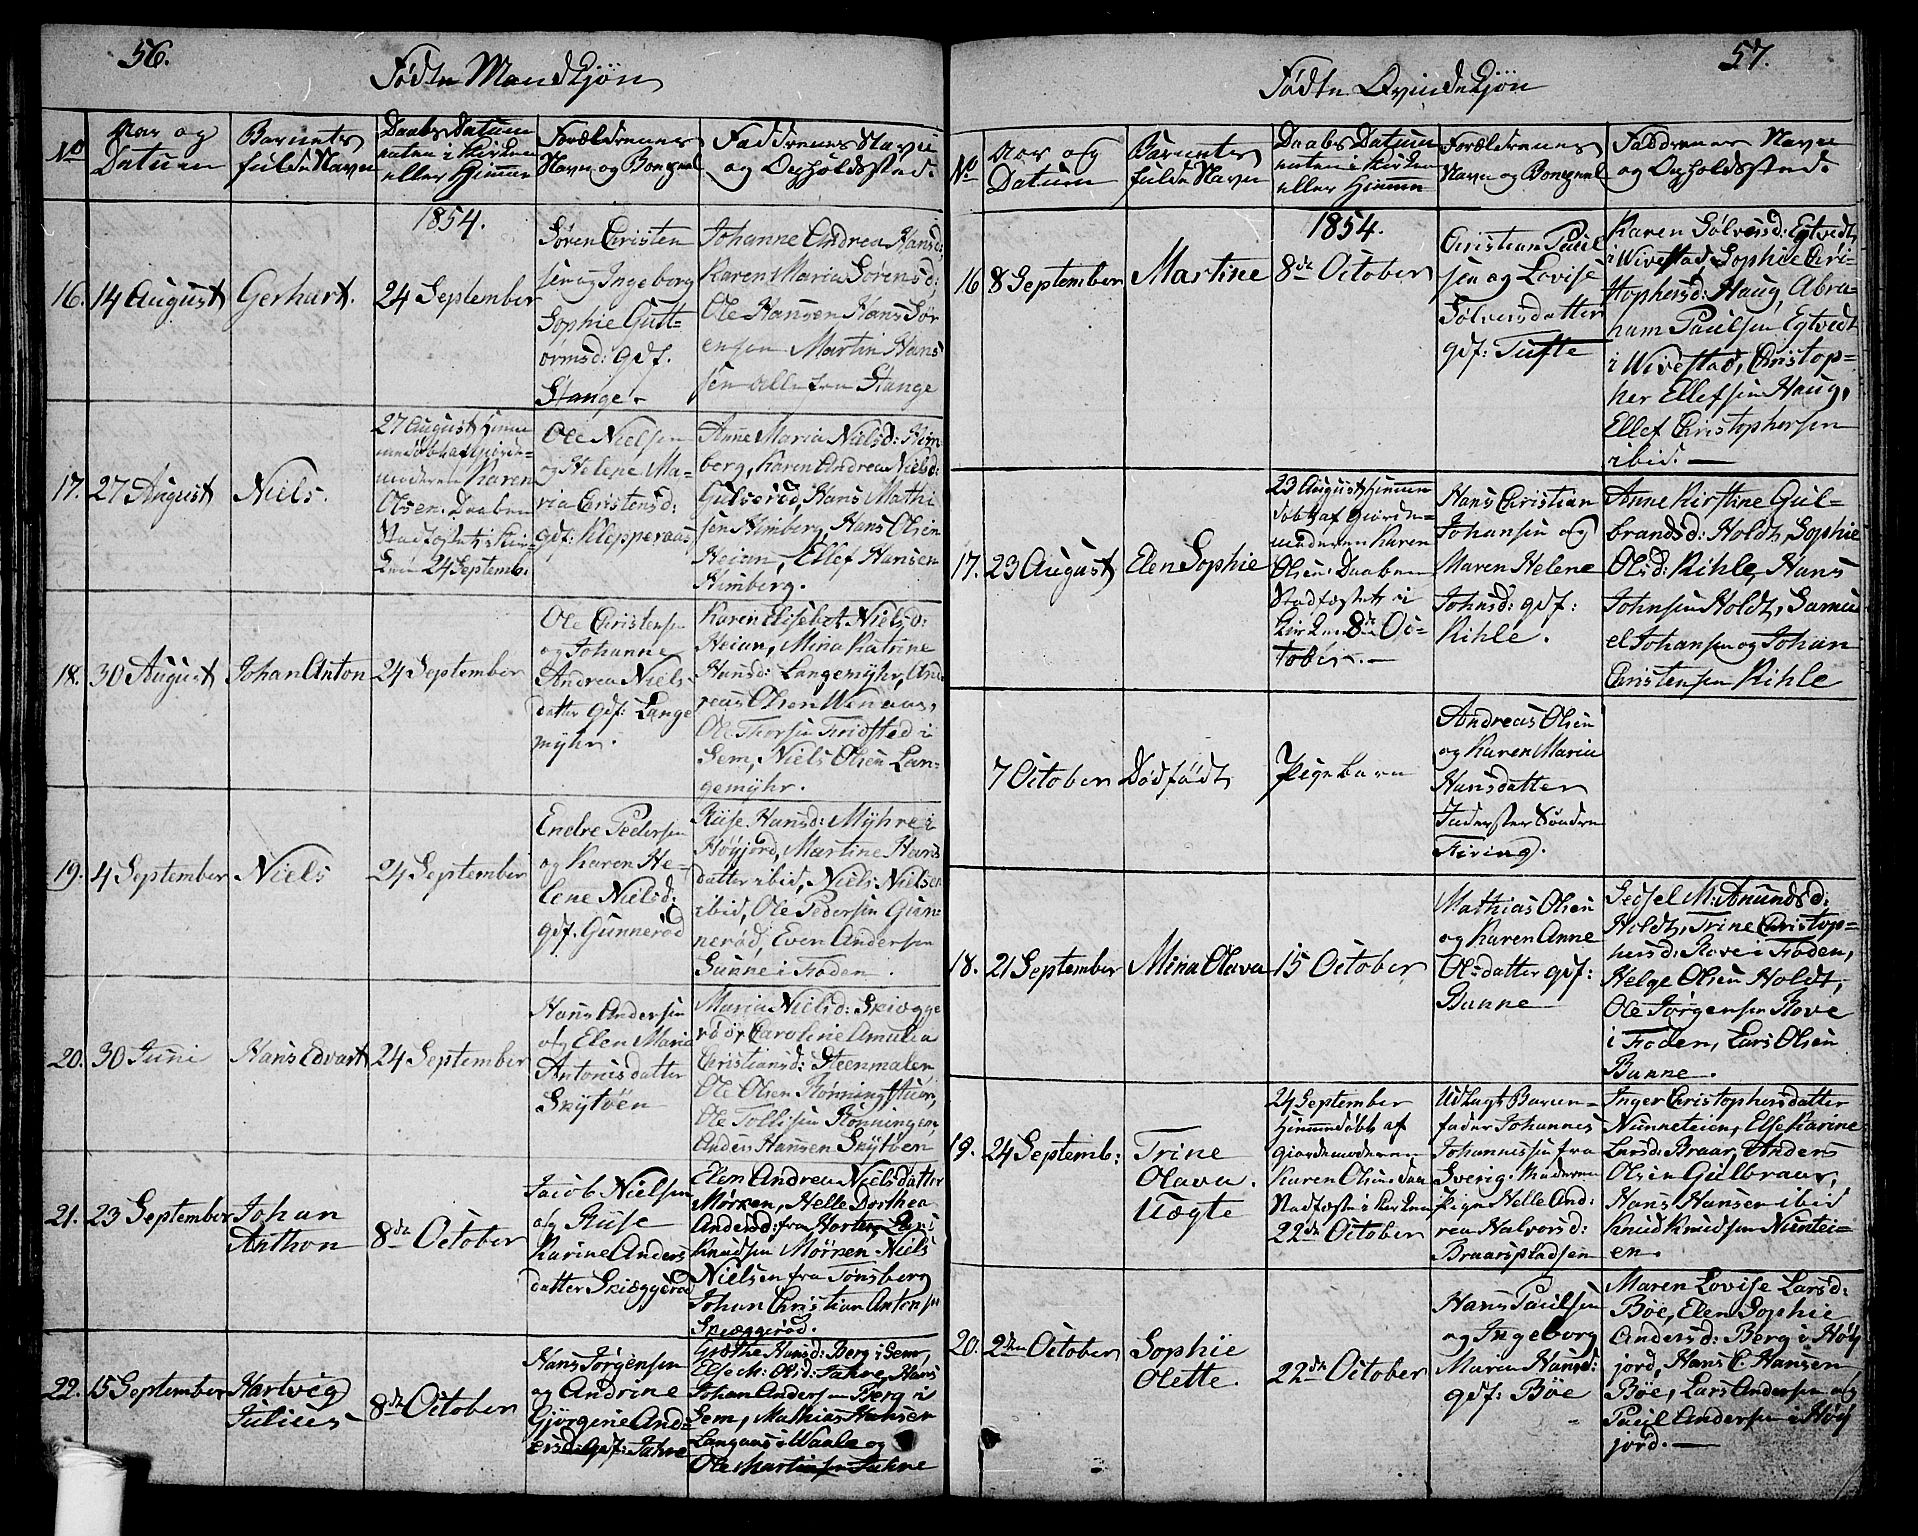 56.
Fødte Mandkjøn
No
Aar og
Datum
Barnets
fulde Navn
Daabs Datum
enten i Kirken
eller Hjemme
Forældrenes
Navn og Bopæl
Faddrenes Navn
og Opholdssted.
1854.
16.
14 August
Gerhart.
24 September
Søren Christen
sen og Ingeborg
Sophie Gutt=
ormsd: gdf.
Stange.
Johanne Andrea Hansd:
Karen Maria Sørensd:,
Ole Hansen Hans Sør
ensen Martin Hans
sen alle fra Stange
17.
27 August
Niels.
27 August Hjemme
af Gjorde=
moderen Karen
Olsen. Daaben
Stadfæstet i Kir
ken 24 Septemb.
Ole Nielsen
og Helene Ma=
ria Christensd:
gdf: Klepperaas,
Anne Maria Nielsd: Him
berg, Karen Andrea Nielsd:
Gulserød, Hans Mathi
sen Himberg, Hans Olsen
Heian, Ellef Hansen
Himberg.
18.
30 August
Johan Anton
24 September
Ole Christensen
og Johanne
Andrea Niels
datter gdf: Lange
mÿhr.
Karen Elisebet Nielsd:
Heian, Mina Katrine
Hansd: Langemÿhr, And
reas Olsen Wenaas,
Ole Thorsen Fredstad i
Sem, Niels Olsen Lan=
gemÿhr.
19.
4 September
Niels
24 September
Endre Pedersen
og Karen He=
lene Nielsd:
gdf. Gunnerød
Hansd: Mÿhre i
Høijord, Martine Hans
datter ibid, Niels Nielsen
ibid, Ole Pedersen Gun=
nerød, Even Andersen
Sunne i Foden.
20.
30 Juni
Hans Edvart
24 September
Hans Andersen
og Elen Maria
Antonisdatter
Skÿtøen
Maria Nielsd: Skiægge
rød, Caroline Amalia
Christiansd: Steenmalen
Ole Olsen Rønningstuen,
Ole Tollisen Rønningen,
Anders Hansen Skÿtøen
21.
23 September
Johan
Anthon
8de October
Jacob Nielsen
og
Karine Anders
datter Skiæggerød
Elen Andrea Nielsdatter
Mørken, Helle Dorthea
Andersd: fra Horten, Lars
Knudsen Mørken, Niels
Nielsen fra Tønsberg
Johan Christian Antonsen
Skiæggerød.
22.
15 September
Hartvig
Julius
8de October
Hans Jørgensen
og Andrine
Gjørgine And=
ersd: gdf: Jahre
Grethe Hansd: Berg i Sem,
Else M: Olsd: Jahre, Hans
Johan Andersen Berg i
Sem, Mathias Hansen
Langaas i Waale og
Ole Martinsen Jahre
57.
Fødte Qvindekjøn
No
Aar og
Datum
Barnets
fulde Navn
Daabs Datum
enten i Kirken
eller Hjemme
Forældrenes
Navn og Bopæl
Faddrenes Navn
og Opholdssted.
1854.
16
8 September
Martine
8de October
Christian Paul
sen og Lovise
Sølversdatter
gdf: Tufte
Karen Sølversd: Egtvedt
i Wivestad Sophie Chri=
stophersd: Haug, Abra=
ham Paulsen Egtvedt
i Wivestad, Christop=
her Ellefsen Haug,
Ellef Christophersen
ibid.
17.
23 August
Elen Sophie
23 August Hjemme
døbt af Gjorde=
moderen Karen
Olsen. Daaben
Stadfæstet i
Kirken 8de Oc=
tober.
Hans Christian
Johansen og
Maren Helene
Johnsd: gdf:
Kihle.
Anne Kirstine Gul=
brandsd: Holdt, Sophie
Olsd: Kihle, Hans
Johnsen Holdt, Samu
el Johansen og Johan
Christensen Kihle
7 October
Dødfødt
Pigebarn
Andreas Olsen
og Karen Maria
Hansdatter
Inderster Søndre
Firing.
18.
21 September
Mina Olava
15 October
Mathias Olsen
og Karen Anne
Olsdatter gdf:
Bunne
Sedsel M: Anundsd:
Holdt, Trine Christop=
hersd: Rove i Foden,
Helge Olsen Holdt,
Ole Jørgensen Rove
i Foden, Lars Olsen
Bunne.
19.
24 Septemb:
Trine
Olava.
Uægte
24 September
Hjemmedøbt af
Gjordemoderen
Karen Olsen Daa
Stadfæste i Kirken
22de October
Udlagt Barne=
fader Johannes
Johannissen fra
Sverig. Moderen
Pige Helle And
rea Halvorsd:
Braarspladsen
Inger Christophersdatter
Nunneteien, Else Karine
Larsd: Braar, Anders
Olsen Gulbraar,
Hans Hansen ibid
Knud Knudsen Nuntei=
en.
20.
2den October
Sophie
Olette.
22de October
Hans Paulsen
og Ingeborg
Maren Hansd:
gdf: Bøe
Maren Lovise Larsd:
Bøe, Elen Sophie
Andersd: Berg i Høÿ
jord, Hans C. Hansen
Bøe, Lars Andersen og
Paul Andersen i Høÿ
jord.